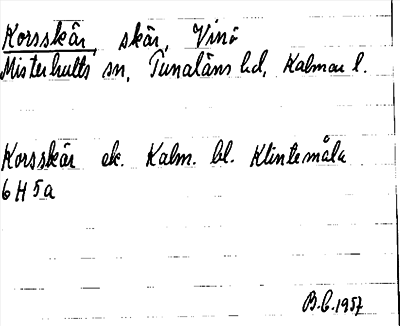 Korsskär, skär, Vinö
Misterhults sn, Tunaläns hd, Kalmar l.
Korsskär ek. Kalm. bl. Klintemåla
6 H 5a
B.C. 1957